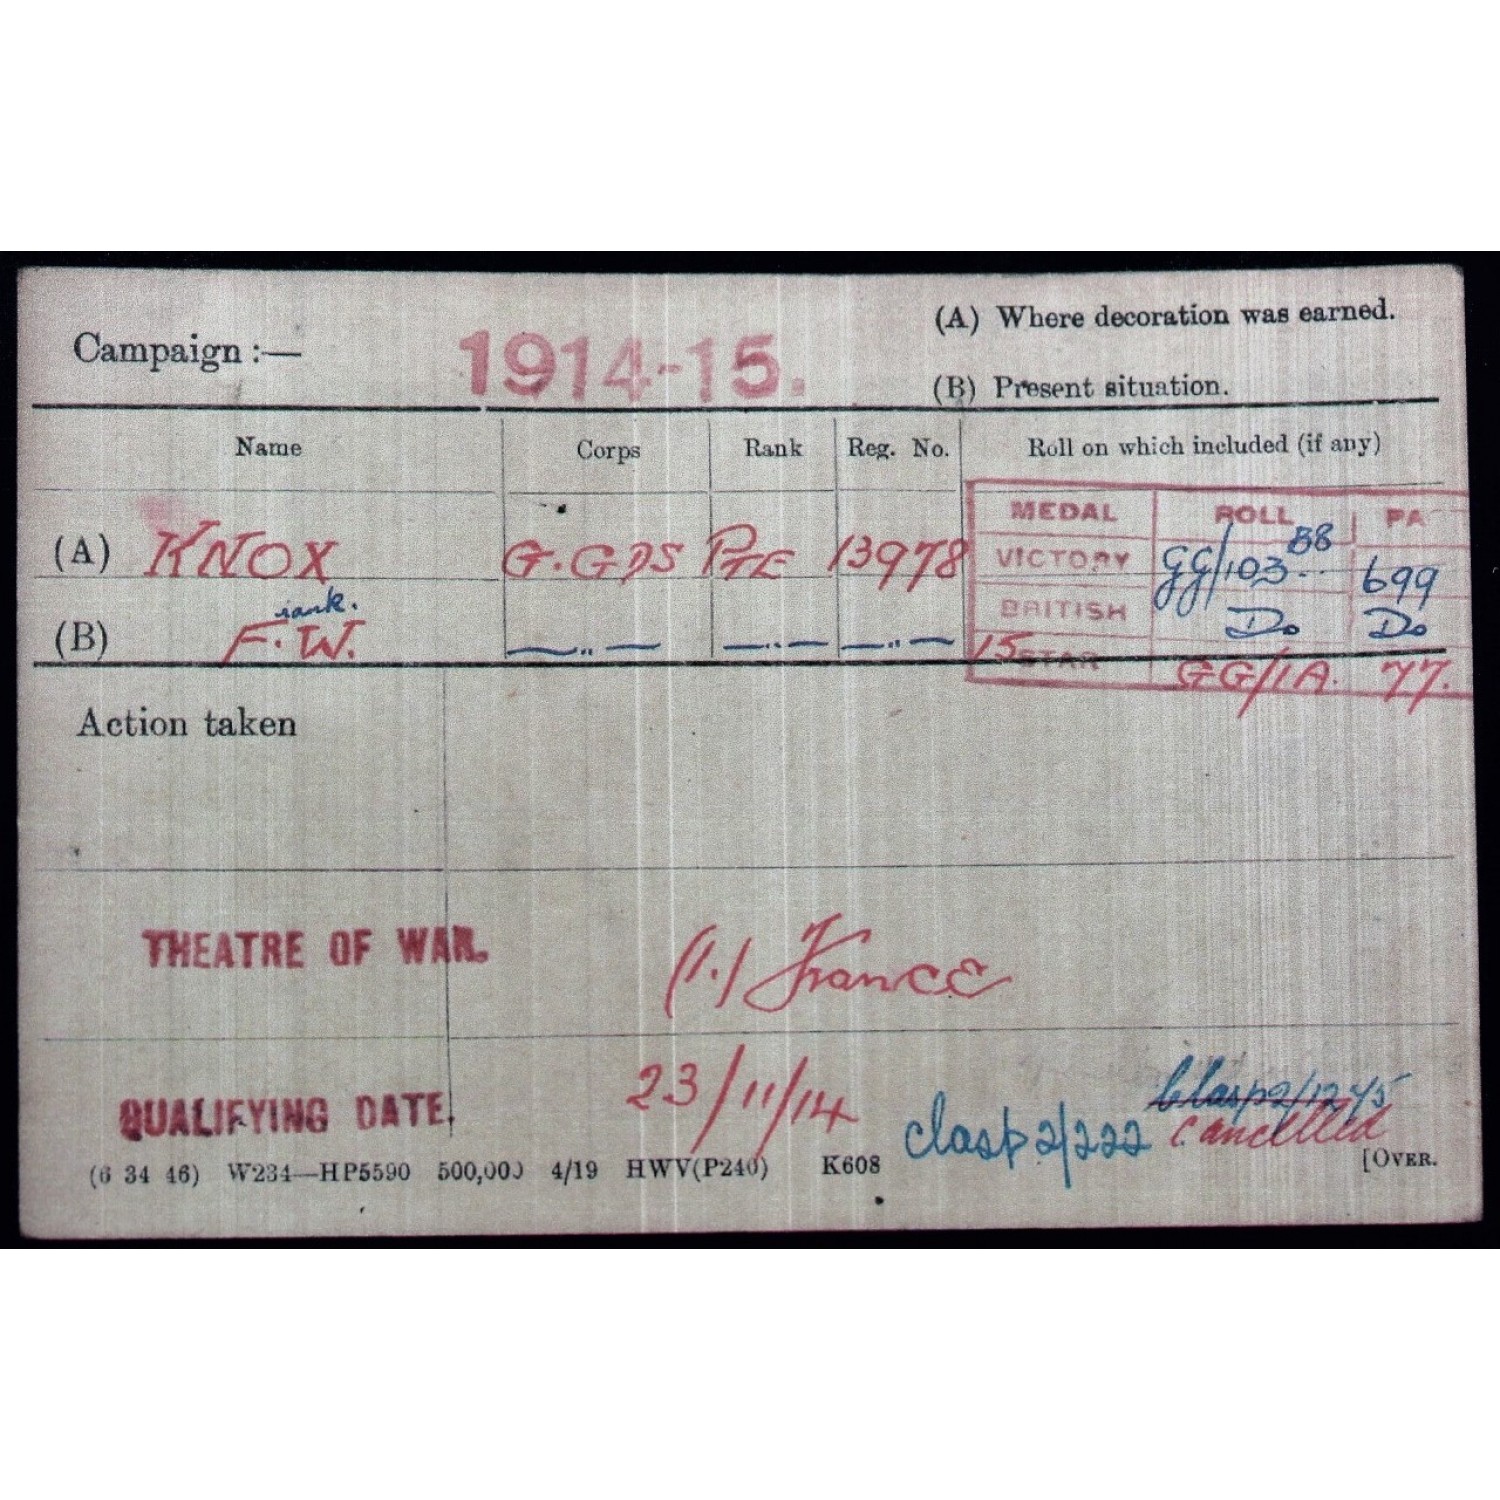 Campaign :— 1914-15.
(A) Where decoration was earned.
(B) Present situation.
Name Corps Rank Reg. No. Roll on which included (if any)
MEDAL ROLL PA
(A) KNOX G.GDS PTE 13978
VICTORY GG/103 B8 699
BRITISH Do Do
(B) F.W. —„— —„— —„—
15 STAR GG/1A. 77.
Action taken
THEATRE OF WAR. (1.) France
QUALIFYING DATE. 23/11/14
clasp 2/222 Clasp 2/1245 cancelled
(6 34 46) W234—HP5590 500,000 4/19 HWV(P240) K608 [OVER.